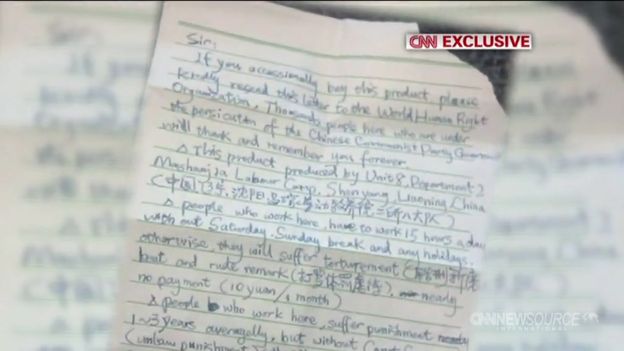 CNN EXCLUSIVE
Sir:
If you occassionally buy this product, please
kindly resend this letter to the World Human Right
Organization. Thousands people here who are under
the persicution of the Chinese Communist Party Government
will thank and remember you forever.
This product produced by Unit 8, Department 2
Mashanjia Labour Camp, Shenyang, Liaoning, China
(中国, 辽宁, 沈阳,
people who work here, have to work 15 hours a day
with out Saturday, Sunday break and any holidays.
otherwise, they will suffer torturement
beat and rude remark nearly
no payment (10 yuan/1 month)
people who work here, suffer punishment nearly
1~3 years averagelly, but without Court
(unlaw punishment)
CNN NEWSOURCE
INTERNATIONAL